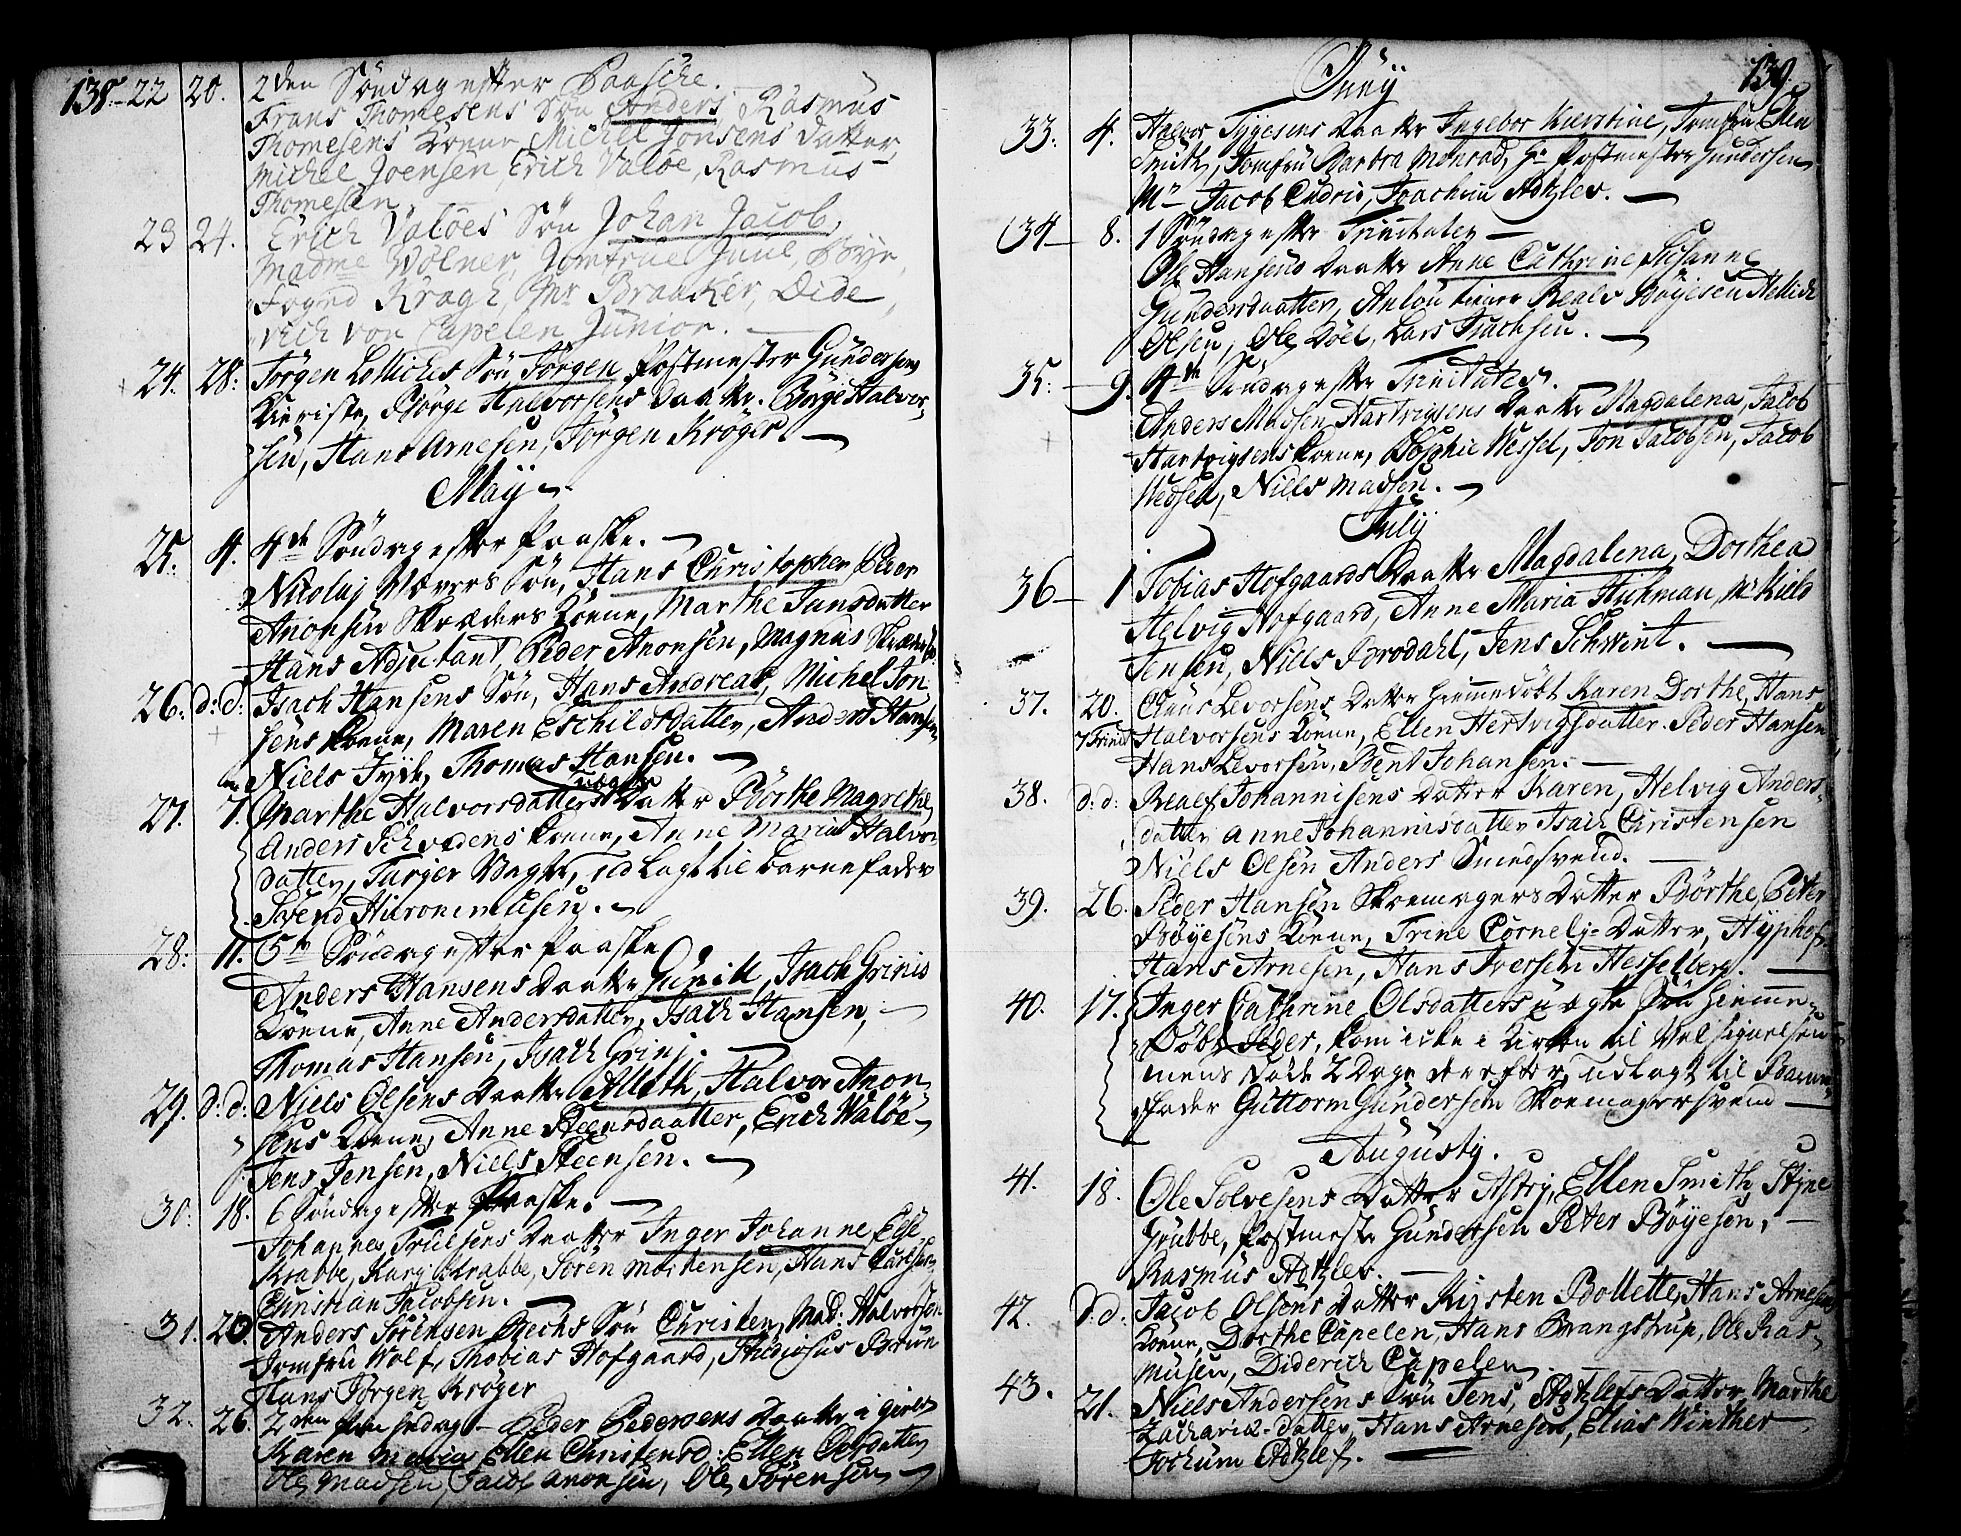 138.
22 20. 2den Söndag efter Paasche.
Frans Thomesens Sön Anders, Rasmus
Thomesens Kone, Michel Jonsens Datter,
Michel Joensen, Erich Valöe, Rasmus
Thomesen
23 24. Erich Valöes Sön Johan Jacob,
Madme Wölner, Jomfrue Juul, Böye,
Fogud Kragh, Mr Braaker, Dide
rich von Capelen Junior.
24. 28: Jörgen Sön Jörgen Postmester Gundersens
Kieriste, Börge Halvorsens Daatter. Börge Halvor
sen, Hans Arnesen, Jörgen Kröger.
Maij
25. 4. 4de Söndag efter Paaske.
Nikolaj Sön, Hans Christopher, Peder
Anonsen Skræders Kone, Marthe Jansdatter
Hans Adjutant, Peder Anonsen, Magnus
26: d: d: Isach Hansens Sön, Hans Andreas, Michel Jon
sens Kone, Maren Eschildsdatter, Anders Hansen
Niels Jyde, Thomas Hansen.
27. 7. Marthe Halvorsdatters uægte Datter Börthe Magrethe,
Anders Schvedens Kone, Anne Maria Halvors
datter, Turger Vagt, udlagt til Barnefader
Svend Hieronimusen.
28: 11. 5te Söndag efter Paaske
Anders Hansens Daatter Gunild, Isach Grinis
Kone, Anne Andersdatter, Isach Hansen,
Thomas Hansen, Isach Grini.
29. d: d: Niels Olsens Daatter Alleth, Halvor Anon
sens Kone, Anne Steensdaatter, Erich Valöe
Jens Jensen, Niels Steensen.
30: 18. 6 Söndag efter Paaske.
Johannes Truelsens Daatter Inger Johanne,
Krabbe, Karj Krabbe, Sören Mortensen, Hans Carlsen
Christian Jacobsen.
31. 20. Anders Sörensen Bechs Sön Christen, Mad: Halvorsen
Jomfru Wolf, Thobias Hofgaard, Brun
Hans Jörgen Kröger
32. 26. 2den Peder Pedersens Daatter i
Karen Maria Ellen Christensd: Ellen Olsdatter
Ole Madsen, Jacob Anonsen, Ole Sörensen
139.
Junij
33: 4. Halvor Tygesens Daatter Ingebor Kierstine, Jomfru Elen
Smith, Jomfru Barbra Monrad, Hr Postmester Gundersen
Mr Jacob Cudrio, Joachum Adtzlev.
34 8. 1 Söndag efter Trinitatis
Ole Hansens Daatter Anne Cathrine, Susanne
Gundersdaatter, Realv Böyesen
Olsen, Ole Döel, Lars Isachsen.
35: 9. 4de Söndag efter Trinitatis.
Anders Madsen Hartvigsens Daatter Magdalena, Jacob
Hartvigsens Kone, Sophie Wessel, Jon Jacobsen, Jacob
Niels Madsen.
Julij
36 1 Tobias Hofgaards Daatter Magdalena, Dorthea
Helvig Hofgaard, Anne Maria Hichman, Mr Niels
Jensen, Niels Brodahl, Jens Schwint.
37. 20. Claus Levorsens Datter hiemmedöbt Karen Dorthe, Hans
7 Trinit Halvorsens Kone, Ellen Hertvigsdatter. Peder Hansen
Hans Levorsen, Bent Johansen.
38. d: d: Realf Johannisens Datter Karen, Helvig Anders
datter Anne Johannisdatter Isach Christensen
Niels Olsen Anders Smedsvend.
39. 26. Peder Hansen Skoemagers Datter Börthe, Peter
Böyesens Kone, Trine Cornelj-Datter, Hyphof,
Hans Arnesen, Hans Iversen Hesselberg.
40. 17. Inger Cathrine Olsdatters uægte Sön hiemme
döbt Peder, kom icke i Kirken til Velsignelsen
mens döde 2 Dage derefter, udlagt til Barne
fader Guttorm Gundersen Skoemagersvend
Augusty.
41. 18. Ole Solvesens Datter Astrj, Ellen Smith, Stine
Grubbe, Postmester Gundersen Peter Böyesen,
Rasmus Adtzlev.
42. d: d: Jacob Olsens Datter Kirsten Bollette, Hans Arnesens
Kone, Dorthe Capelen, Hans Brangstrup, Ole Ras
musen, Diderich Capelen
43. 21. Niels Andersens Sön Jens, Adtzlefs Datter, Marthe
Zacharia-datter, Hans Arnesen, Elias Winther
Jochum Adtzlef.